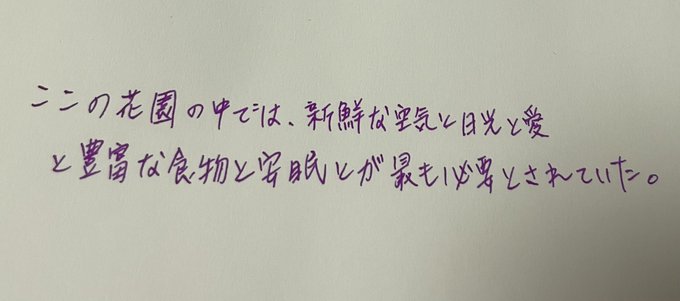 ここの花園の中では、新鮮な空気と日光と愛
と豊富な食物と安眠とが最も必要とされていた。